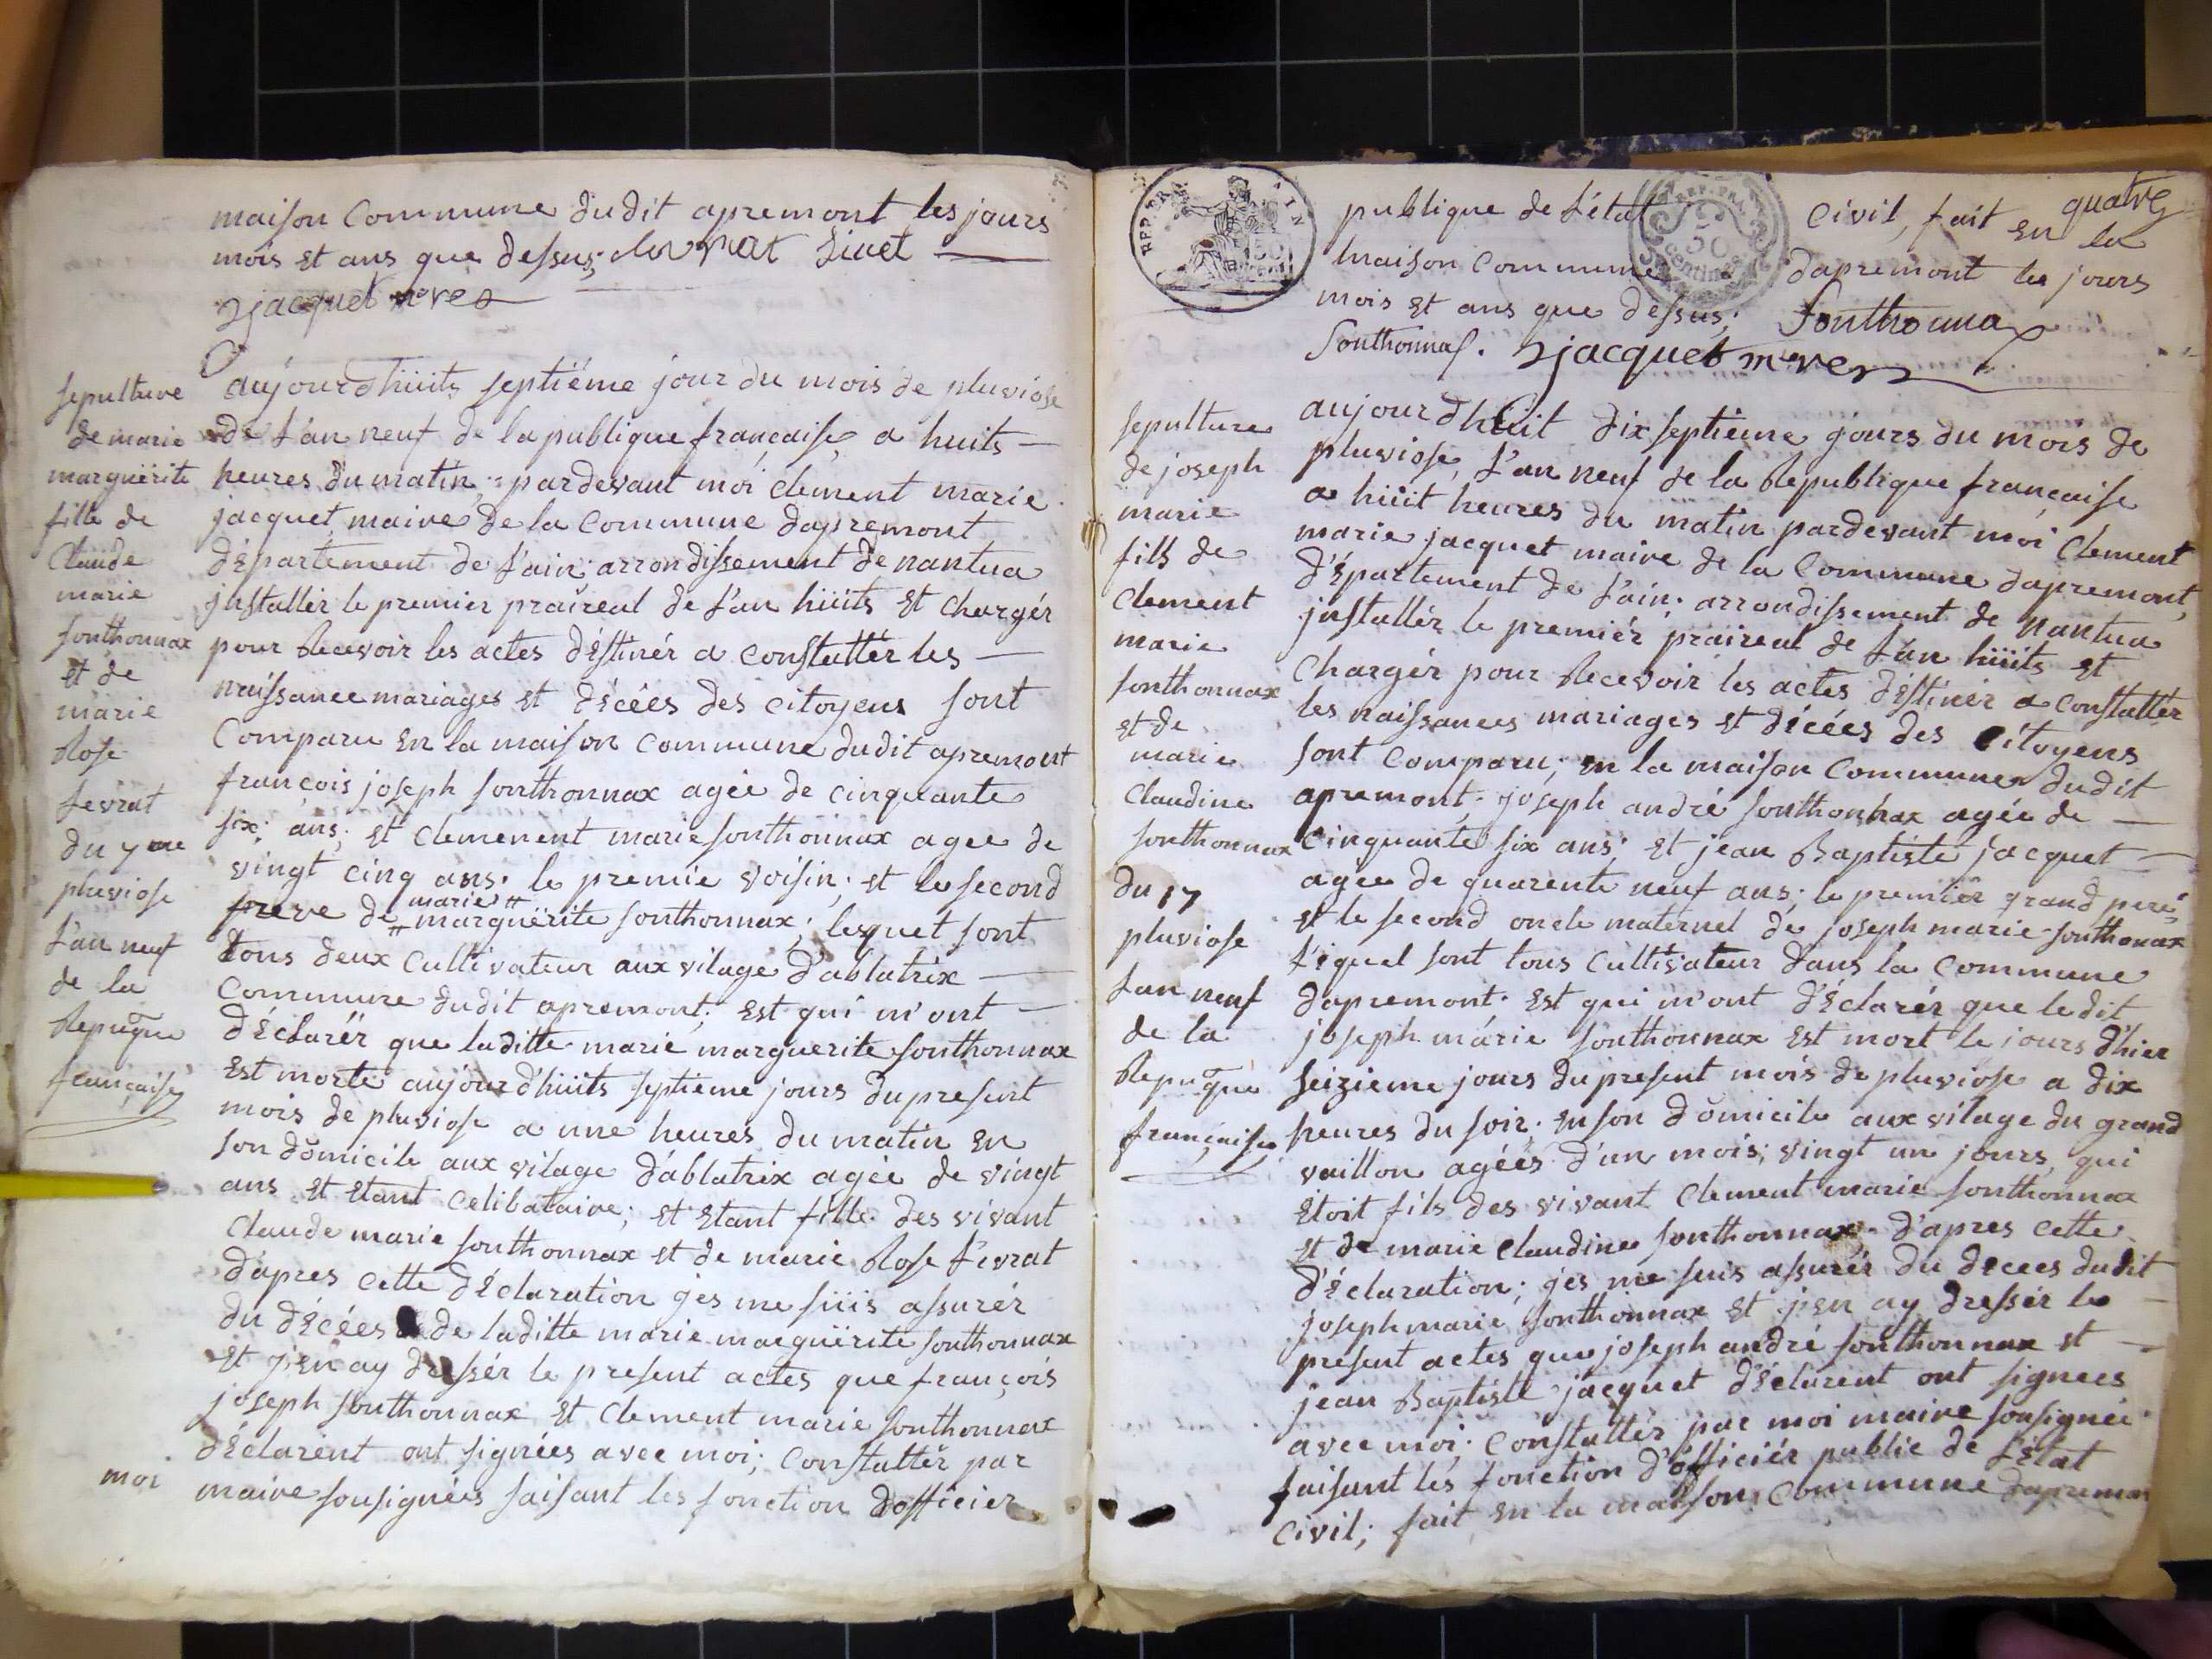 maison Commune dudit apremont les jours
mois et ans que dessus;
jacquet m.re
sepulture
de marie
marguërite
fille de
Claude
marie
sonthonnax
et de
marie
Rose
levrat
du 7me
pluviose
l'an neuf
de la
Repuque
française
aujourdhüits septiéme jour du mois de pluviose
de l'an neuf de la publique française, a huits
heures du matin; pardevant moi clement marie
jacquet maire de la Commune dapremont
département de l'ain; arrondissement de nantua
jnstallér le premier praireal de l'an hüits et chargér
pour Recevoir les actes déstinér a constattér les
naissance mariages et décées des citoyens sont
Comparu en la maison commune dudit apremont
françois joseph sonthonnax agée de cinquante
six; ans; et clemenent marie sonthonnax agee de
vingt cinq ans; le premie voisin; et le second
marie
frere de marguërite sonthonnax; lesquet sont
tous deux Cultivateur aux vilage d'ablatrix
Commune dudit apremont; est qui m'ont
déclarér que laditte marie marguerite sonthonnax
Est morte aujourd'hüits septieme jours du present
mois de pluviose a une heures du matin en
son domicile aux vilage d'ablatrix agée de vingt
ans et etant celibataire; et etant fille des vivant
Claude marie sonthonnax et de marie Rose l'evrat
d'apres cette déclaration jes me süis assurér
du décées de laditte marie marguërite sonthonnax
et j'en ay dressér le present actes que françois
joseph sonthonnax et clement marie sonthonnax
déclarent ont signées avec moi; Constattér par
moi maire sousignées faisant les fonction d'officier
quatre
publique de l'état Civil, fait en la
maison commune dapremont les jours
mois et ans que dessus; Sonthonnax
Sonthonnax. jacquet m.re
sepulture
de joseph
marie
fills de
clement
marie
sonthonnax
et de
marie
Claudine
sonthonnax
du 17
pluviose
l'an neuf
de la
Repuque
française
aujourdhüit dix septieme jours du mois de
pluviose, l'an neuf de la Republique française
a hüit heures du matin pardevant moi clement
marie jacquet maire de la Commune dapremont,
d'épartement de l'ain; arrondissement de nantua
jnstallér le premiér praireal de l'an hüits et
Chargér pour Recevoir les actes déstinér a constattér
les naissances mariages et décées des Citoyens
sont comparu; en la maison commune dudit
apremont; joseph andré sonthonnax agée de
Cinquante six ans; et jean Baptiste jacquet
agée de quarente neuf ans; le premiér grand pere
et le second oncle maternel de joseph marie sonthonax
l'equel sont tous Cultivateur dans la commune
dapremont; Est qui m'ont d'éclarér que le dit
joseph marie sonthonnax est mort le jours d'hier
seizieme jours du present mois de pluviose a dix
heures du soir; en son domicile aux vilage du grand
vaillon agées d'un mois; vingt un jours, qui
étoit fils des vivant clement marie sonthonnax
et de marie claudine sonthonnax; d'apres cette
déclaration; jes me suis assurér du decees dudit
joseph marie sonthonnax et j'en ay dressér le
present actes que joseph andré sonthonnax et
jean Baptiste jacquet déclarent ont signees
avec moi; Constattér par moi maire sousignée
faisant les fonction d'officiér public de l'état
Civil; fait en la maison Commune dapremon